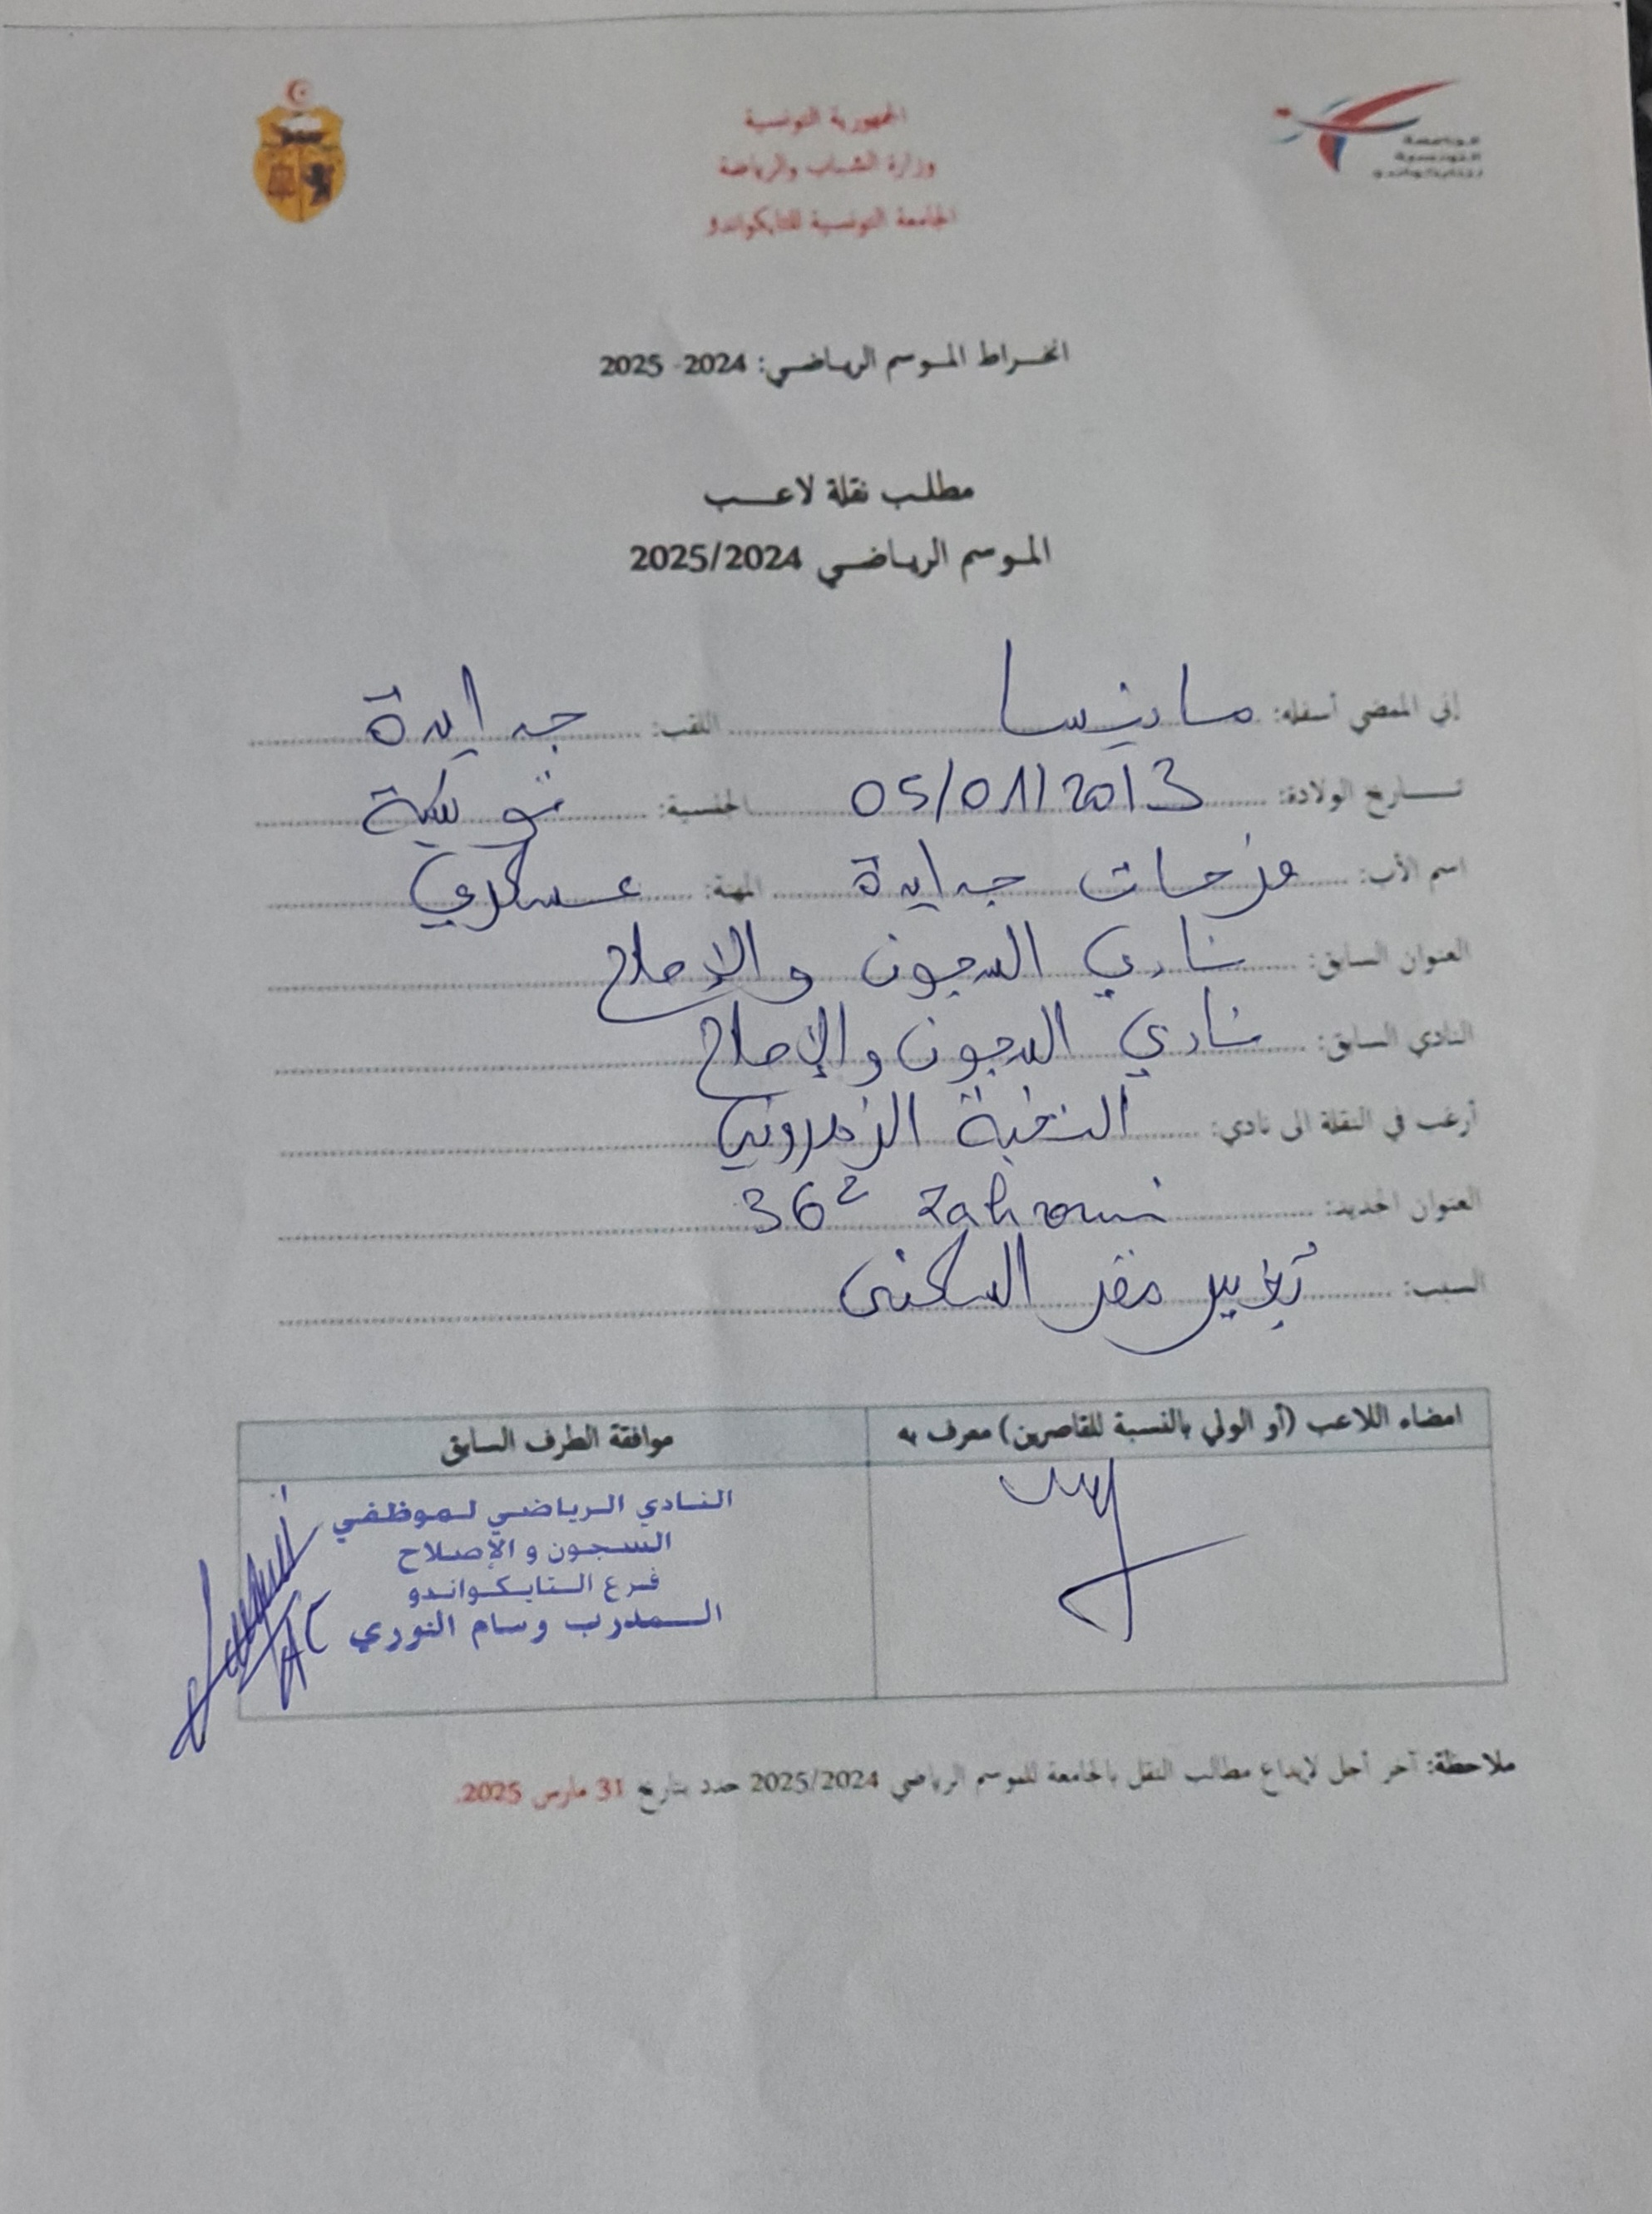 الجمهورية التونسية
وزارة الشباب والرياضة
الجامعة التونسية للتايكواندو
الجامعة
التونسية
للتايكواندو
انخراط الموسم الرياضي: 2024- 2025
مطلب نقلة لاعب
الموسم الرياضي 2025/2024
إني الممضي أسفله: مانيسا اللقب: جدايدة
تاريخ الولادة: 05/01/2013 الجنسية: تونسية
اسم الأب: فرحات جدايدة المهنة: عسكري
العنوان السابق: نادي السجون والإصلاح
النادي السابق: نادي السجون والإصلاح
أرغب في النقلة الى نادي: النخبة الزهروني
العنوان الجديد: Zahrouni
السبب: تغيير مقر السكنى
امضاء اللاعب (أو الولي بالنسبة للقاصرين) معرف به
موافقة الطرف السابق
النادي الرياضي لموظفي
السجون و الإصلاح
فرع التايكواندو
المدرب وسام النوري
ملاحظة: آخر أجل لإيداع مطالب النقل بالجامعة للموسم الرياضي 2025/2024 حدد بتاريخ 31 مارس 2025.